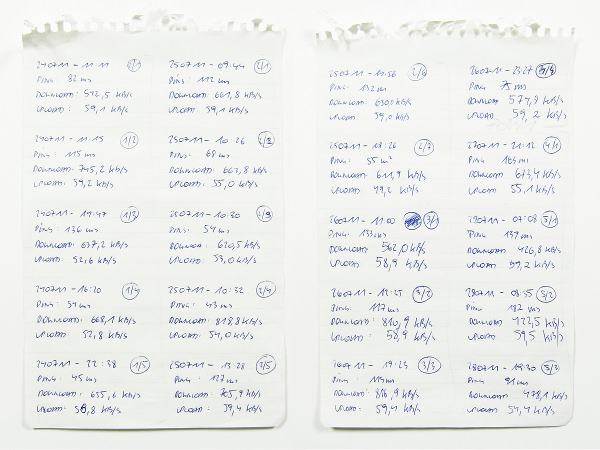 240711 - 11:11 1/1
PING: 82 ms
DOWNLOAD: 542,5 kB/s
UPLOAD: 59,1 kB/s
240711 - 11:15 1/2
PING: 115 ms
DOWNLOAD: 745,2 kB/s
UPLOAD: 59,2 kB/s
240711 - 19:47 1/3
PING: 136 ms
DOWNLOAD: 677,2 kB/s
UPLOAD: 52,6 kB/s
240711 - 16:20 1/4
PING: 51 ms
DOWNLOAD: 668,1 kB/s
UPLOAD: 52,8 kB/s
240711 - 22:38 1/5
PING: 45 ms
DOWNLOAD: 655,6 kB/s
UPLOAD: 58,8 kB/s
250711 - 09:44 2/1
PING: 112 ms
DOWNLOAD: 661,8 kB/s
UPLOAD: 59,1 kB/s
250711 - 10:26 2/2
PING: 68 ms
DOWNLOAD: 663,8 kB/s
UPLOAD: 55,0 kB/s
250711 - 10:30
PING: 54 ms
DOWNLOAD: 620,5 kB/s
UPLOAD: 53,0 kB/s
250711 - 10:32 2/4
PING: 43 ms
DOWNLOAD: 818,8 kB/s
UPLOAD: 54,0 kB/s
250711 - 13:28 2/5
PING: 127 ms
DOWNLOAD: 705,9 kB/s
UPLOAD: 59,4 kB/s
250711 - 13:56 2/6
PING: 132 ms
DOWNLOAD: 630,0 kB/s
UPLOAD: 59,0 kB/s
250711 - 18:26 2/7
PING: 55 ms
DOWNLOAD: 611,9 kB/s
UPLOAD: 49,2 kB/s
260711 - 11:00 3/1
PING: 133 ms
DOWNLOAD: 562,0 kB/s
UPLOAD: 58,9 kB/s
260711 - 12:25 3/2
PING: 117 ms
DOWNLOAD: 810,9 kB/s
UPLOAD: 58,9 kB/s
260711 - 19:25 3/3
PING: 119 ms
DOWNLOAD: 816,9 kB/s
UPLOAD: 59,4 kB/s
260711 - 23:27 3/4
PING: ms
DOWNLOAD 577,9 kB/s
UPLOAD 59,2 kB/s
270711 - 21:12 4/1
PING 165 ms
DOWNLOAD 673,4 kB/s
UPLOAD 55,1 kB/s
280711 - 07:08 5/1
PING 139 ms
DOWNLOAD 426,8 kB/s
UPLOAD 59,2 kB/s
280711 - 08:55 5/2
PING 182 ms
DOWNLOAD 422,5 kB/s
UPLOAD 59,5 kB/s
280711 - 19:30 5/3
PING 91 ms
DOWNLOAD 478,1 kB/s
UPLOAD 54,4 kB/s